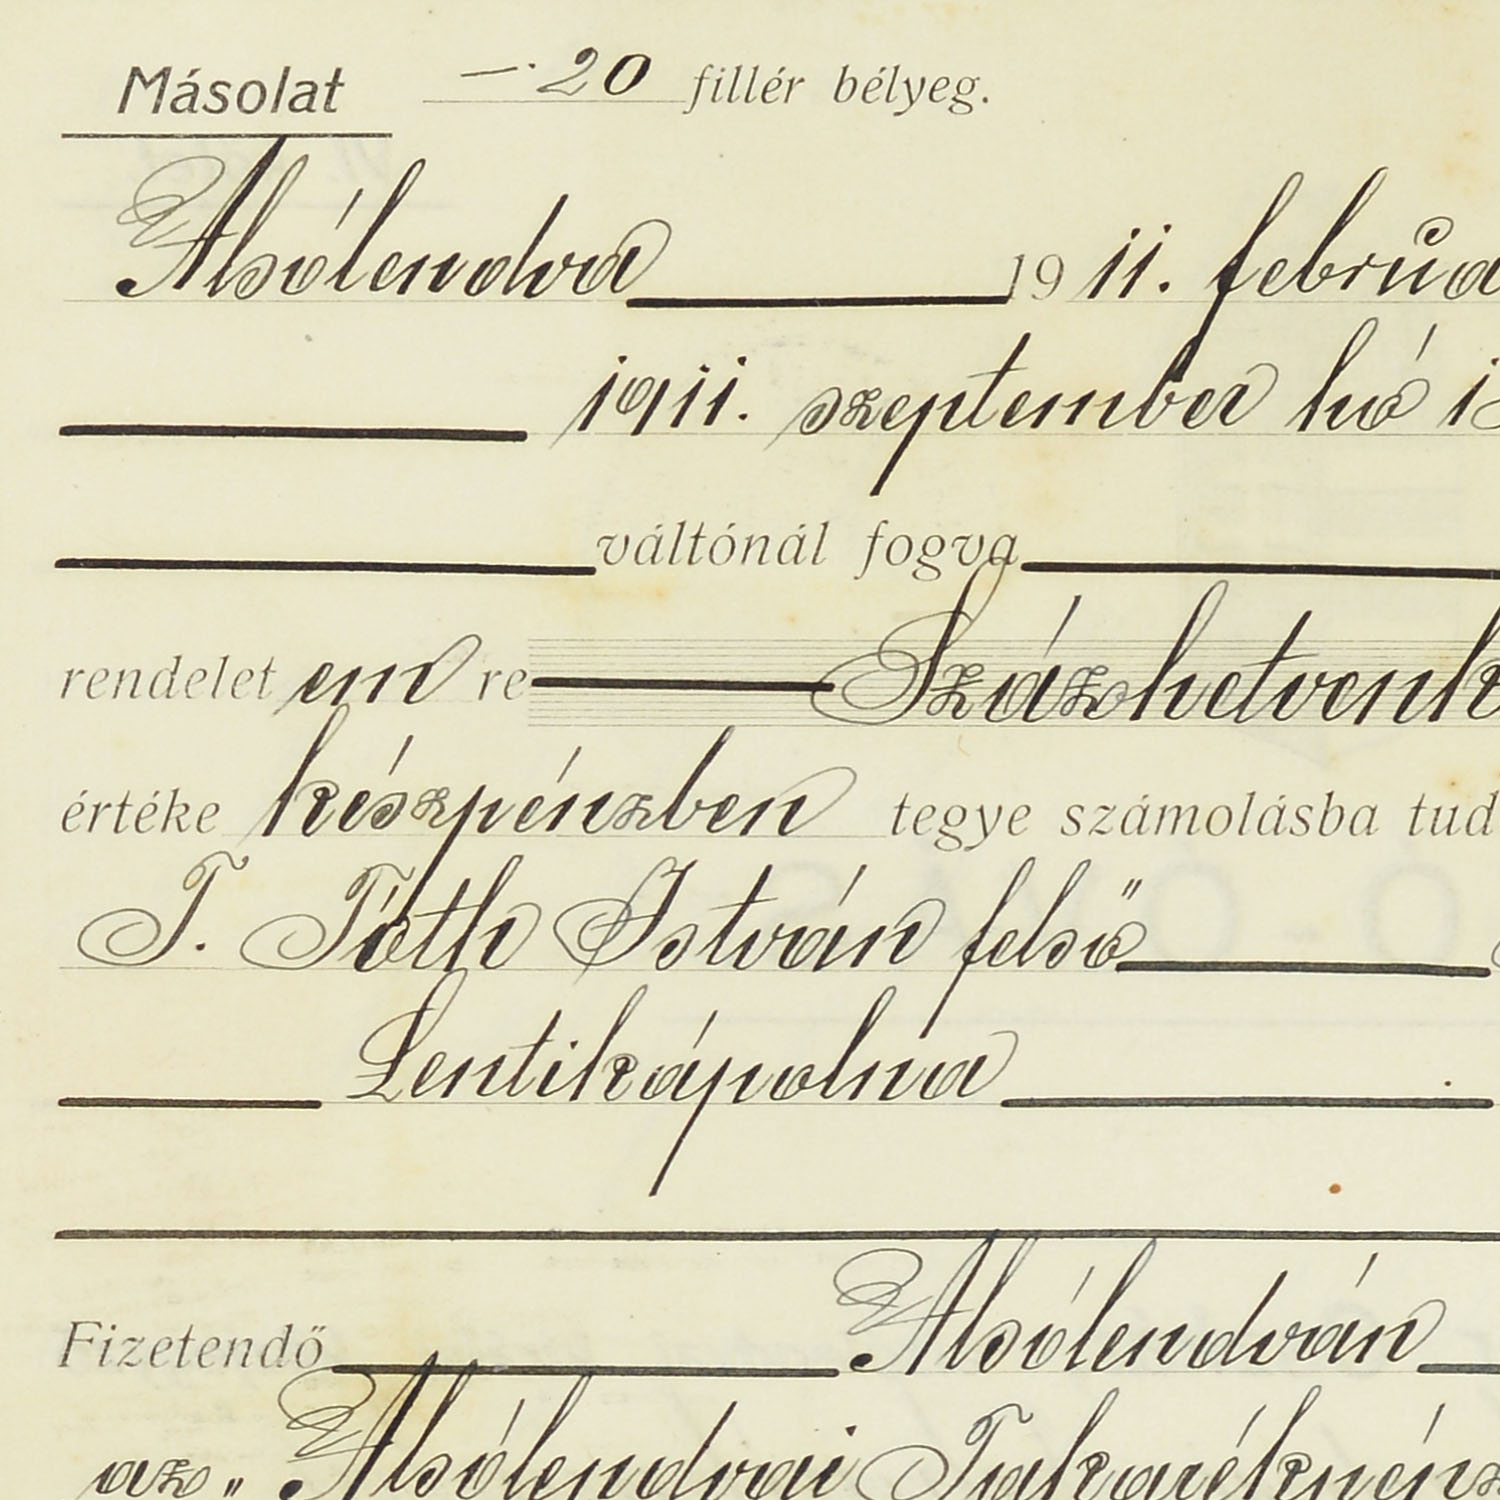 Másolat —·20 fillér bélyeg.
Alsólendva 1911. februá
1911. szeptember hó 1
váltónál fogva
rendelet em re Százhetvenk
értéke készpénzben tegye számolásba tud
T. Tóth István felső
Lentikápolna
Fizetendő Alsólendván
az „Alsólendvai Takarékpénz